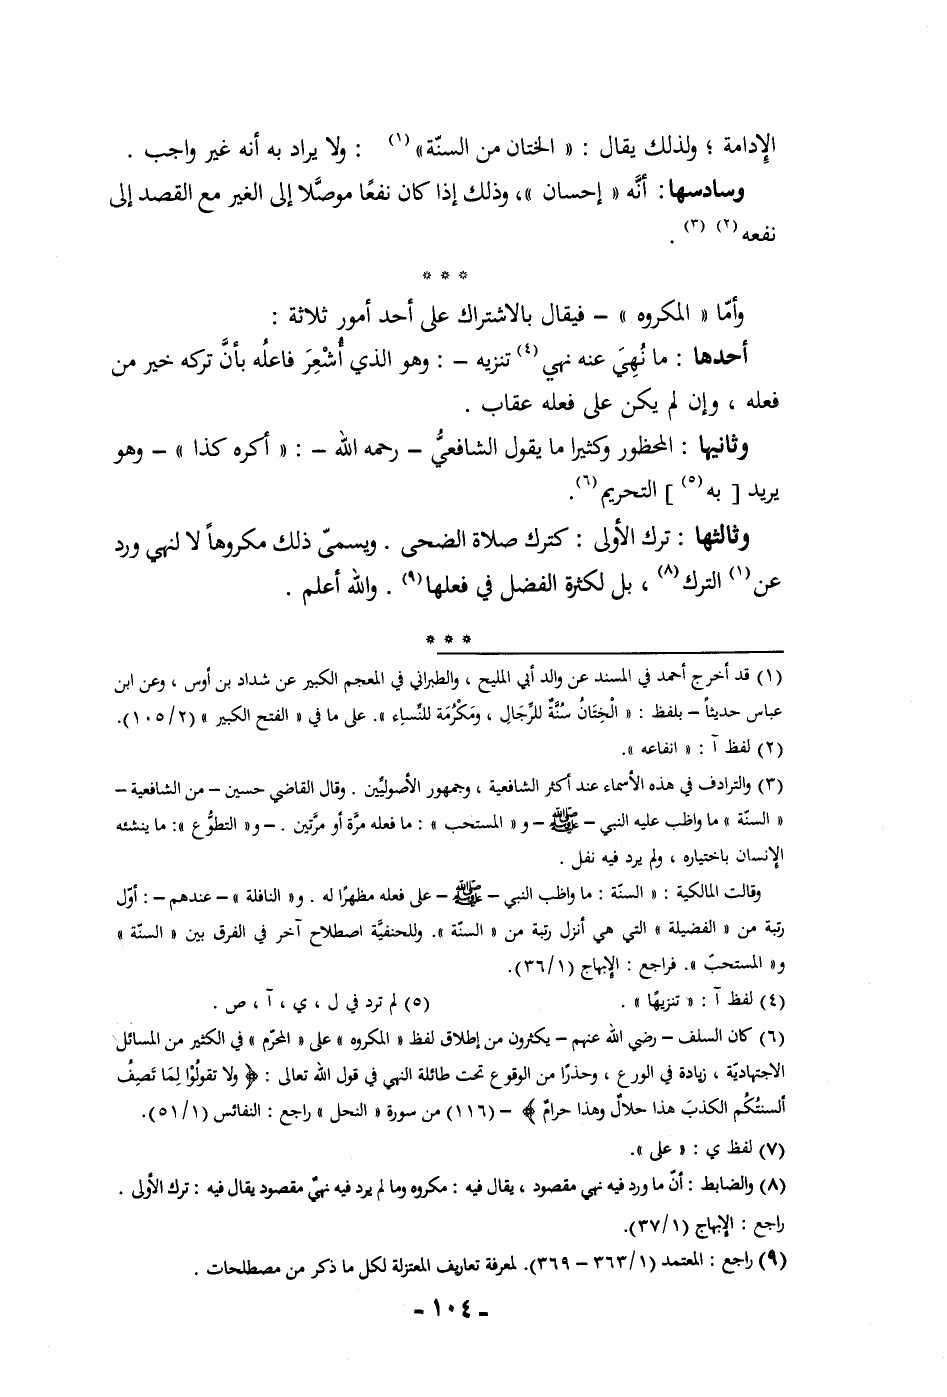 الإدامة ؛ ولذلك يقال : « الختان من السنّة» (١) : ولا يراد به أنه غير واجب .
وسادسها: أنَّه « إحسان »، وذلك إذا كان نفعًا موصَّلا إلى الغير مع القصد إلى
نفعه (٢) (٣) .
* * *
وأمّا « المكروه » – فيقال بالاشتراك على أحد أمور ثلاثة :
أحدها : ما نُهِيَ عنه نهي (٤) تنزيه – : وهو الذي أُشْعِرَ فاعلُه بأنَّ تركه خير من
فعله ، وإن لم يكن على فعله عقاب .
وثانيها : المحظور وكثيرا ما يقول الشافعيُّ – رحمه الله – : « أكره كذا » – وهو
يريد [ به (٥) ] التحريم (٦).
وثالثها : ترك الأولى : كترك صلاة الضحى . ويسمىّ ذلك مكروهاً لا لنهي ورد
عن (١) الترك (٨) ، بل لكثرة الفضل في فعلها (٩) . والله أعلم .
* * *
(١) قد أخرج أحمد في المسند عن والد أبي المليح ، والطبراني في المعجم الكبير عن شداد بن أوس ، وعن ابن
عباس حديثاً – بلفظ : « الْخِتَانُ سُنَّةٌ للرِّجَالِ ، ومَكْرُمَة للنِّساءِ ». على ما في « الفتح الكبير » (١٠٥/٢).
(٢) لفظ آ : « انفاعه ».
(٣) والترادف في هذه الأسماء عند أكثر الشافعية ، وجمهور الأصوليِّين . وقال القاضي حسين – من الشافعية –
« السنّة » ما واظب عليه النبي – ﷺ – و « المستحب » : ما فعله مرَّة أو مرَّتين . – و« التطوُّع »: ما ينشئه
الإنسان باختياره ، ولم يرد فيه نقل .
وقالت المالكية : « السنّة : ما واظب النبي – ﷺ – على فعله مظهرًا له . و« النافلة » – عندهم – : أوّل
رتبة من « الفضيلة » التي هي أنزل رتبة من « السنّة ». وللحنفيَّة اصطلاح آخر في الفرق بين « السنّة »
و« المستحبّ ». فراجع : الإبهاج (٣٦/١).
(٤) لفظ آ : « تنزيهًا » . (٥) لم ترد في ل ، ي ، آ ، ص .
(٦) كان السلف – رضي الله عنهم – يكثرون من إطلاق لفظ « المكروه » على « المحرّم » في الكثير من المسائل
الاجتهاديّة ، زيادة في الورع ، وحذرًا من الوقوع تحت طائلة النهي في قول الله تعالى : ﴿ ولا تقولُوْا لِمَا تَصِفُ
ألسنتُكُم الكذبَ هذا حلالٌ وهذا حرامٌ ﴾ – (١١٦) من سورة « النحل » راجع : النفائس (٥١/١).
(٧) لفظ ي : « على ».
(٨) والضابط : أنّ ما ورد فيه نهي مقصود ، يقال فيه : مكروه وما لم يرد فيه نهيٌ مقصود يقال فيه : ترك الأولى .
راجع : الإبهاج (٣٧/١).
(٩) راجع : المعتمد (٣٦٣/١ – ٣٦٩). لمعرفة تعاريف المعتزلة لكل ما ذكر من مصطلحات .
– ١٠٤ –